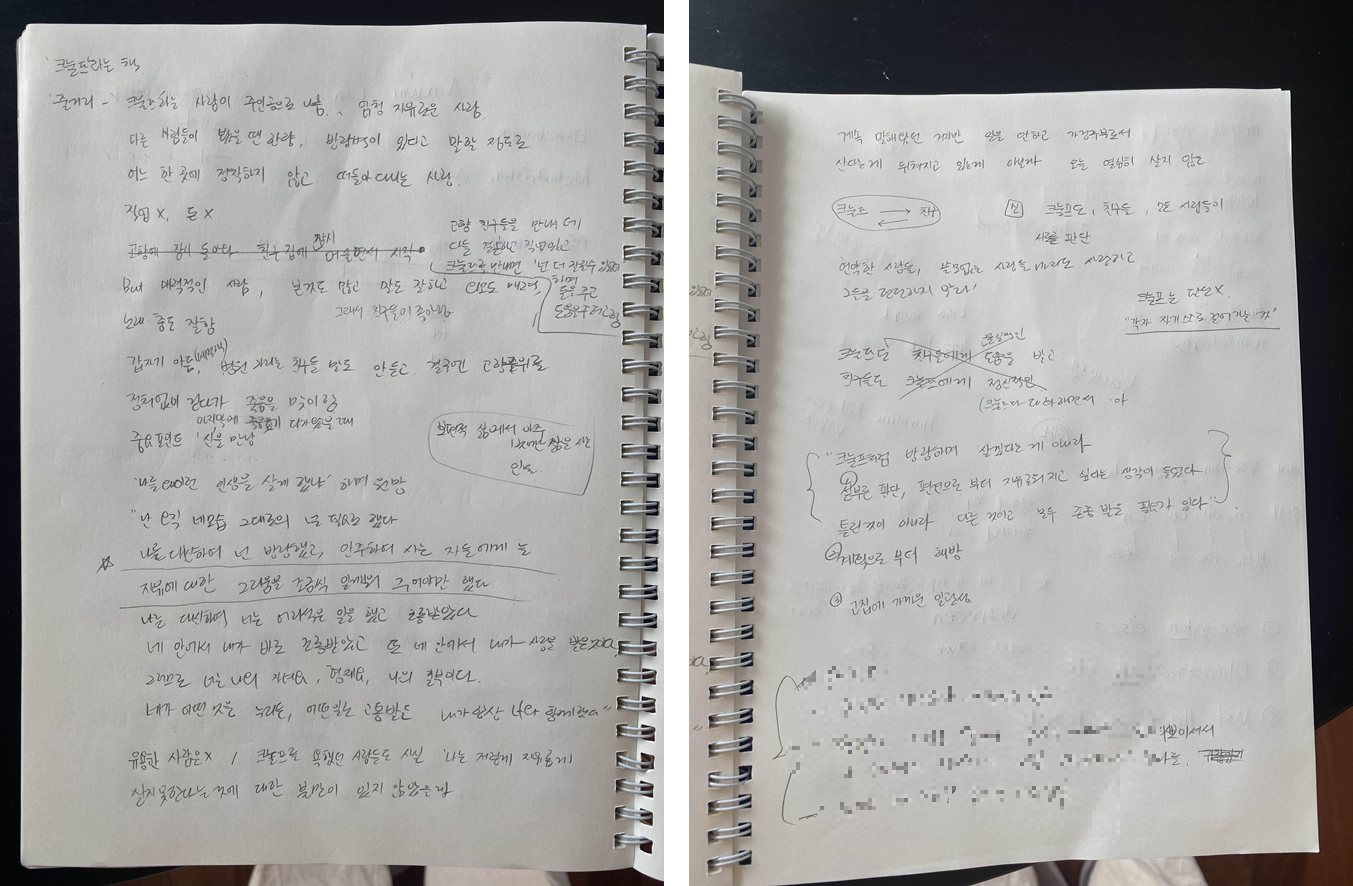 크눌프라는 책
줄거리 - 크눌프라는 사람이 주인공으로 나옴. 엄청 자유로운 사람.
다른 사람들이 봤을 땐 한량, 방랑벽이 있다고 말할 정도로
어느 한 곳에 정착하지 않고 떠돌아다니는 사람.
직업 X, 돈 X
고향에 잠시 돌아와 친구 집에 잠시 머물면서 시작
고향 친구들을 만나는데
다들 결혼하고 직업있고
크눌프를 만나면 '넌 더 잘할수 있어'
하며
돈을 주고
도움을 주려고 함
But 매력적인 사람, 본것도 많고 말도 잘하고 외모도 매력,
그래서 친구들이 좋아함
노래 춤도 잘함
갑자기 아픔(폐병), 병원 가라는 친구들 말도 안듣고 결국엔 고향으로
정처없이 걷다가 죽음을 맞이함
마지막에 죽음이 다가왔을 때
중요포인트 '신'을 만남
보편적 삶에서 아주
벗어난 삶을 사는
인물.
'나를 왜 이런 인생을 살게 했나' 하며 원망
"난 오직 네모습 그대로의 널 필요로 했다
나를 대신하여 넌 방랑했고, 안주하여 사는 자들에게 늘
자유에 대한 그리움을 조금씩 일깨워 주어야만 했다
나를 대신하여 너는 어리석은 일을 했고 조롱받았다
네 안에서 내가 바로 조롱받았고 또 네 안에서 내가 사랑을 받은 것이다
그러므로 너는 나의 자녀요, 형제요, 나의 일부이다.
네가 어떤 것을 누리든, 어떤일로 고통받든 내가 항상 너와 함께했다"
유용한 사람은 X / 크눌프로 욕했던 사람들도 사실 '나는 저렇게 자유롭게
살지 못한다'는 것에 대한 불만이 있지 않았을까
계속 말해왔던 거지만 일을 안하고 가정주부로서
산다는게 뒤쳐지고 있는게 아닐까 오늘 열심히 살지 않은
크눌프 친구
신 크눌프도, 친구들, 모든 사람들이
서로 판단
연약한 사람들, 쓸모없는 사람들마저도 사랑하고
그들을 판단하지 말라'
크눌프는 판단X
"각자 자기 스스로 걸어가는 것"
물질적인
크눌프는 친구들에게 도움을 받고
친구들도 크눌프에게 정신적인
"크눌프처럼 방랑하며 살겠다는 게 아니라
① 섣부른 판단, 편견으로 부터 자유로워지고 싶다는 생각이 들었다
틀린것이 아니라 다른 것이고 모두 존중 받을 필요가 있다"
② 계획으로 부터 해방
③ 고집에 가까운 일관성